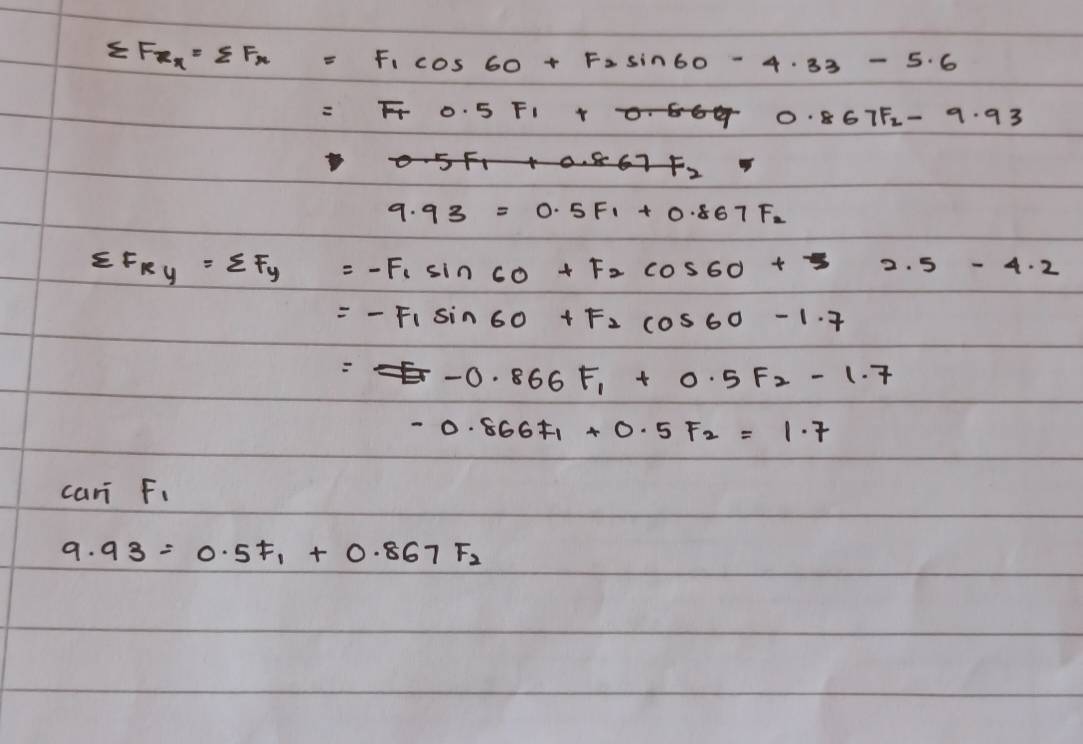 Σ FRx = Σ Fx = F1 cos 60 + F2 sin 60 - 4.33 - 5.6
= 0.5 F1 + 0.867F2 - 9.93
9.93 = 0.5F1 + 0.867 F2
Σ FRy = Σ Fy = -F1 sin 60 + F2 cos 60 + 2.5 - 4.2
= - F1 sin 60 + F2 cos 60 - 1.7
= -0.866 F1 + 0.5 F2 - 1.7
- 0.866F1 + 0.5 F2 = 1.7
cari F1
9.93 = 0.5F1 + 0.867 F2